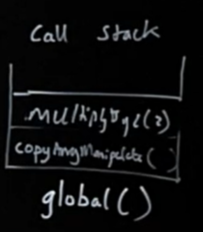 Call Stack
multiplyBy2(2)
copyArrManipulate( )
global()